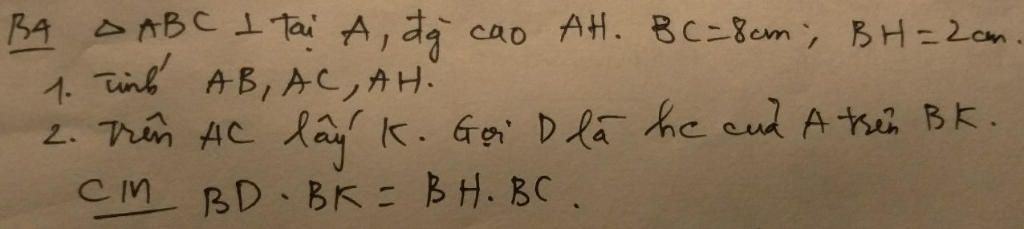 B4 △ ABC ⊥ tại A, đg cao AH. BC=8cm; BH=2cm.
1. Tính AB, AC, AH.
2. Trên AC lấy K. Gọi D là hc của A trên BK.
CM BD.BK = BH.BC.